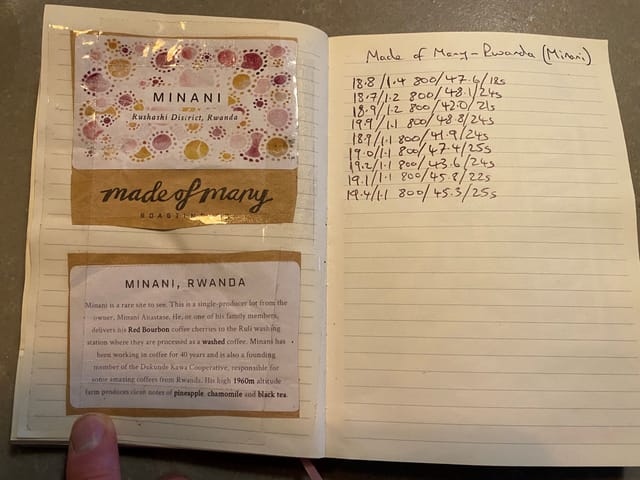 MINANI
Rushashi District, Rwanda
made of many
MINANI, RWANDA
Minani is a rare site to see. This is a single-producer lot from the
owner, Minani Anastase. He, or one of his family members,
delivers his Red Bourbon coffee cherries to the Ruli washing
station where they are processed as a washed coffee. Minani has
been working in coffee for 40 years and is also a founding
member of the Dukunde Kawa Cooperative, responsible for
some amazing coffees from Rwanda. His high 1960m altitude
farm produces clean notes of pineapple, chamomile and black tea.
Made of Many - Rwanda (Minani)
18.8/1.4 800/47.6/18s
18.7/1.2 800/48.1/24s
18.9/1.2 800/42.0/21s
19.9/1.1 800/48.8/24s
18.9/1.1 800/41.9/24s
19.0/1.1 800/47.4/25s
19.2/1.1 800/43.6/24s
19.1/1.1 800/45.8/22s
19.4/1.1 800/45.3/25s